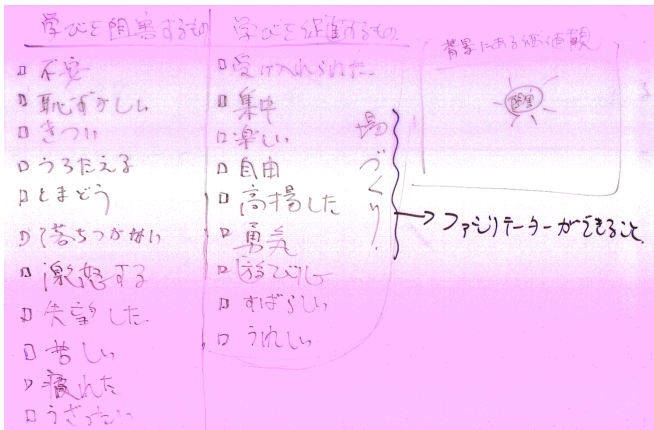 学びを阻害するもの
□ 不安
□ 恥ずかしい
□ きつい
□ うろたえる
□ とまどう
□ 落ちつかない
□ 激怒する
□ 失望した.
□ 苦しい
□ 疲れた
□ うざったい
学びを促進するもの
□ 受け入れられた.
□ 集中
□ 楽しい
□ 自由
□ 高揚した
□ 勇気
□ 遊び心
□ すばらしい
□ うれしい
場づくり!
→ ファシリテーターができること.
背景にある価値観
阻害